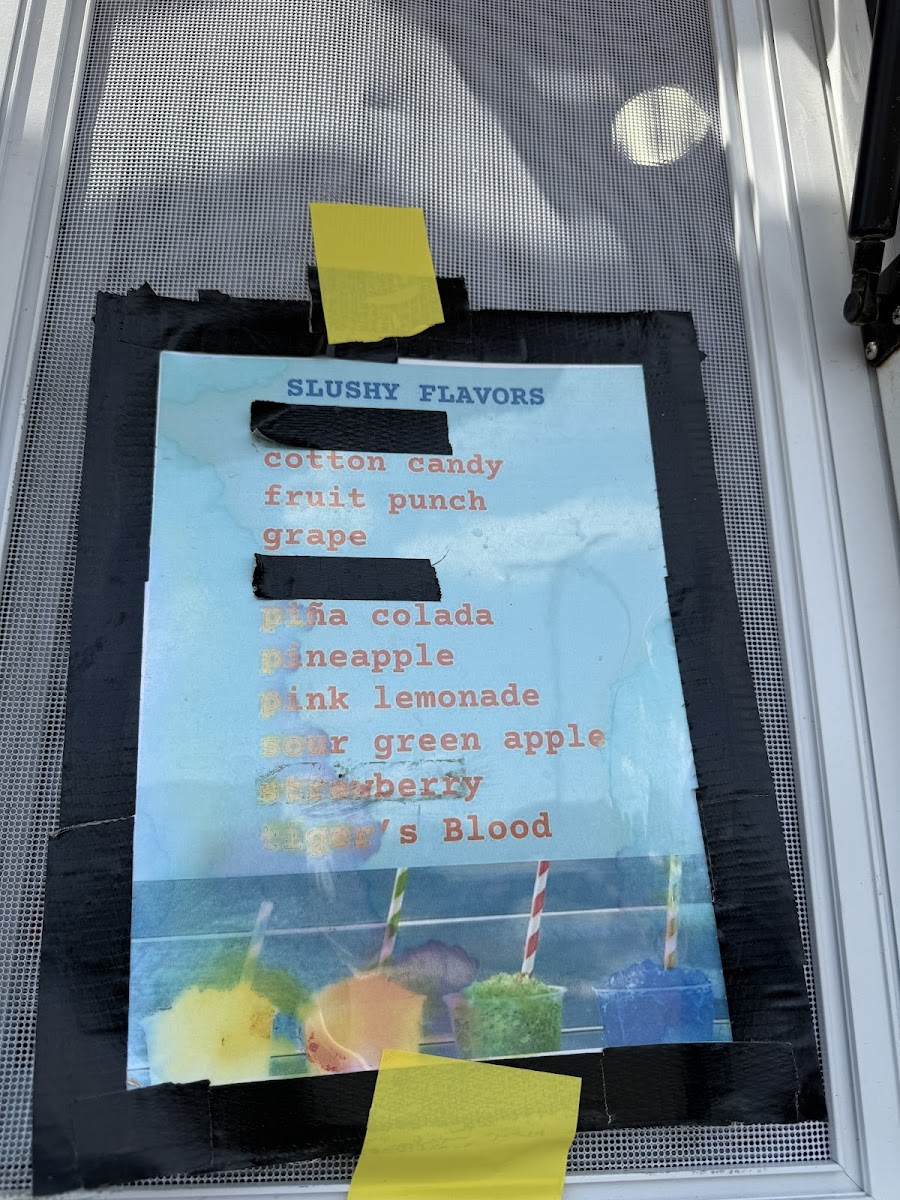 SLUSHY FLAVORS
cotton candy
fruit punch
grape
piña colada
pineapple
pink lemonade
sour green apple
strawberry
tiger's Blood